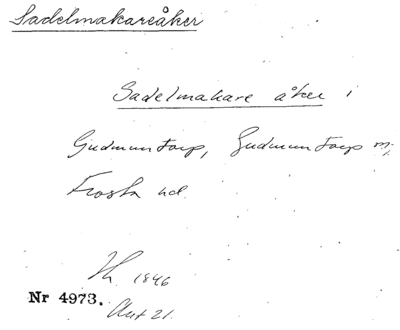 Sadelmakareåker
Sadelmakare åker i
Gudmuntorp, Gudmuntorp
Frosta hd.
1846
Nr 4973.
Akt 21.